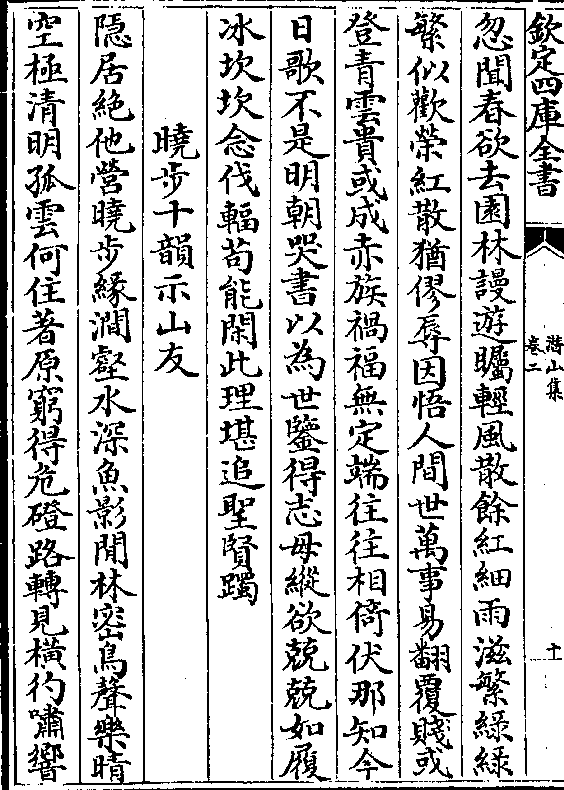 欽定四庫全書
潛山集
卷二
十
忽聞春欲去園林謾遊矚輕風散餘紅細雨滋繁綠綠
繁似歡榮紅散猶僇辱因悟人間世萬事易翻覆賤或
登青雲貴或成赤族禍福無定端往往相倚伏那知今
日歌不是明朝哭書以為世鑒得志毋縱欲兢兢如履
冰坎坎念伐輻苟能閑此理堪追聖賢躅
曉步十韻示山友
隠居絶他營曉步緣澗壑水深魚影閒林密鳥聲樂晴
空極清明孤雲何住著原窮得危磴路轉見横彴嘯響